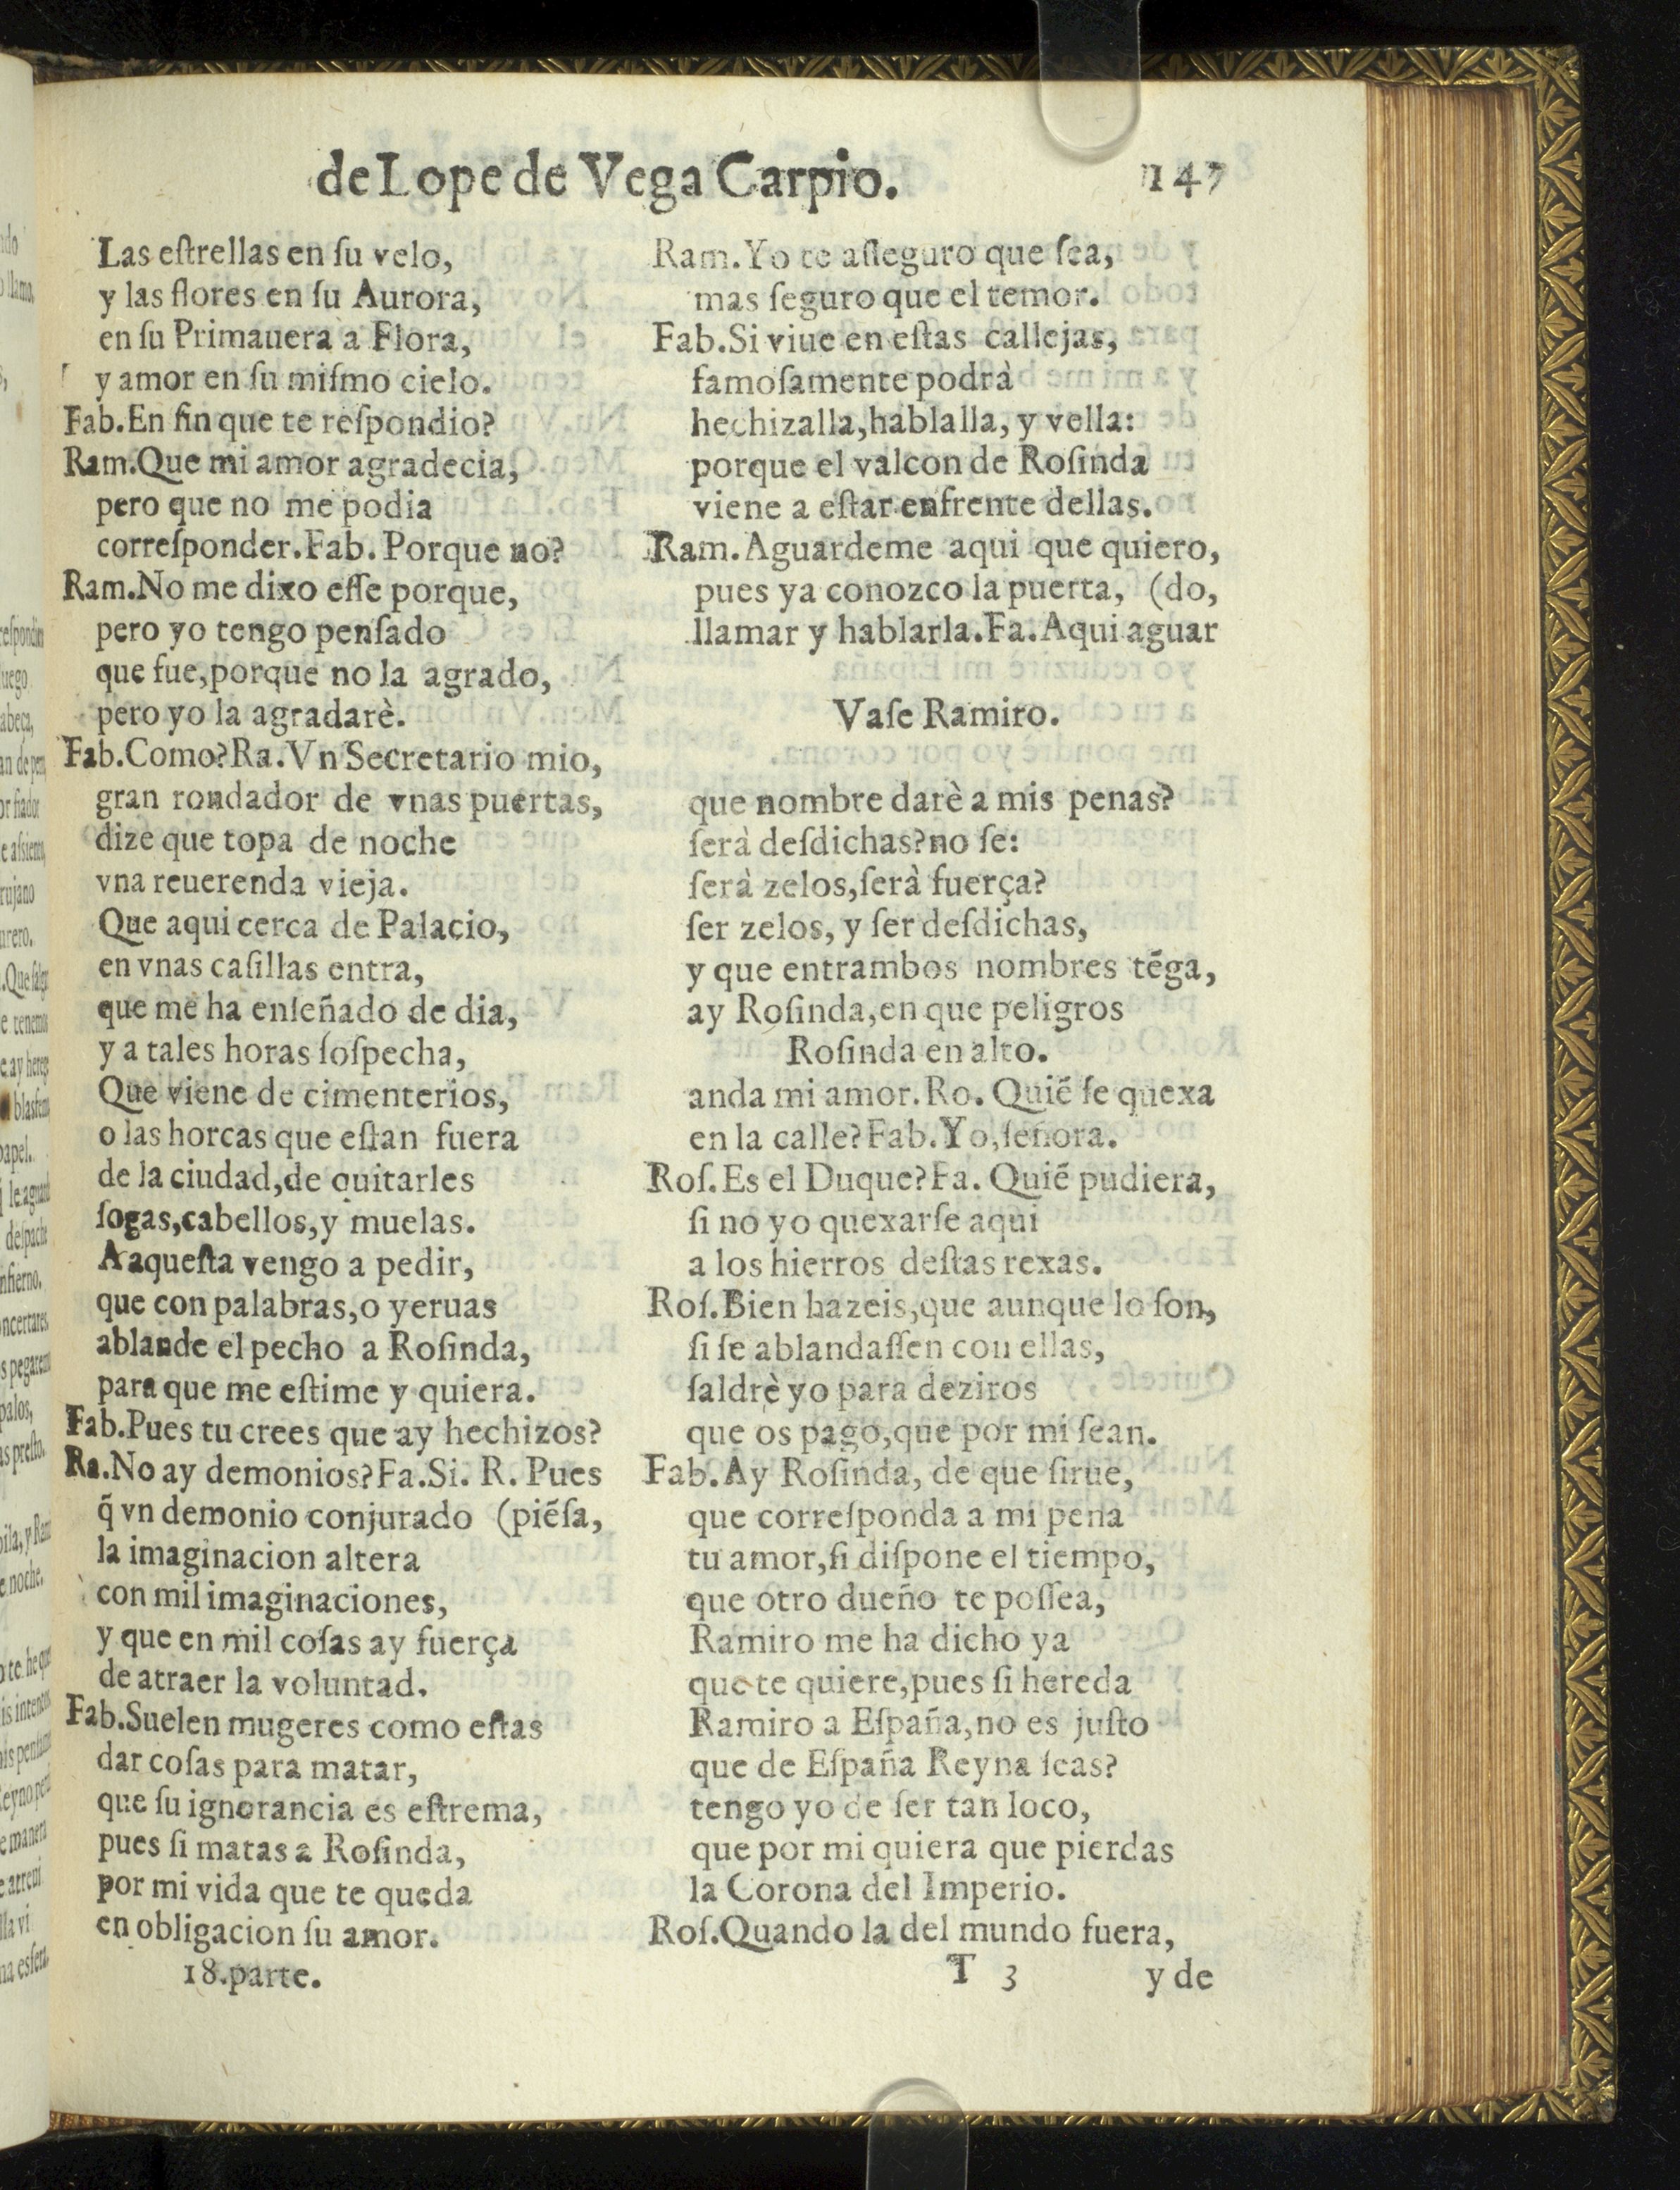 de Lope de Vega Carpio. 147
Las eſtrellas en ſu velo,
y las flores en ſu Aurora,
en ſu Primauera a Flora,
y amor en ſu miſmo cielo.
Fab.En fin que te reſpondio?
Ram.Que mi amor agradecia,
pero que no me podia
correſponder.Fab. Porque no?
Ram.No me dixo eſſe porque,
pero yo tengo penſado
que fue,porque no la agrado,
pero yo la agradarè.
Fab.Como?Ra.Vn Secretario mio,
gran rondador de vnas puertas,
dize que topa de noche
vna reuerenda vieja.
Que aqui cerca de Palacio,
en vnas caſillas entra,
que me ha enſeñado de dia,
y a tales horas ſoſpecha,
Que viene de cimenterios,
o las horcas que eſtan fuera
de la ciudad,de quitarles
ſogas,cabellos,y muelas.
A aqueſta vengo a pedir,
que con palabras,o yeruas
ablande el pecho a Roſinda,
para que me eſtime y quiera.
Fab.Pues tu crees que ay hechizos?
Ra.No ay demonios?Fa.Si. R. Pues
q̃ vn demonio conjurado (piẽſa,
la imaginacion altera
con mil imaginaciones,
y que en mil coſas ay fuerça
de atraer la voluntad.
Fab.Suelen mugeres como eſtas
dar coſas para matar,
que ſu ignorancia es eſtrema,
pues ſi matas a Roſinda,
por mi vida que te queda
en obligacion ſu amor.
18.parte.
Ram.Yo te aſſeguro que ſea,
mas ſeguro que el temor.
Fab.Si viue en eſtas callejas,
famoſamente podrà
hechizalla,hablalla, y vella:
porque el valcon de Roſinda
viene a eſtar enfrente dellas.
Ram.Aguardeme aqui que quiero,
pues ya conozco la puerta, (do,
llamar y hablarla.Fa.Aqui aguar
Vaſe Ramiro.
que nombre darè a mis penas?
ſerà deſdichas?no ſe:
ſerà zelos,ſerà fuerça?
ſer zelos, y ſer deſdichas,
y que entrambos nombres tẽga,
ay Roſinda,en que peligros
Roſinda en alto.
anda mi amor.Ro. Quiẽ ſe quexa
en la calle?Fab.Yo,ſeñora.
Roſ.Es el Duque?Fa. Quiẽ pudiera,
ſi no yo quexarſe aqui
a los hierros deſtas rexas.
Roſ.Bien hazeis,que aunque lo ſon,
ſi ſe ablandaſſen con ellas,
ſaldrè yo para deziros
que os pago,que por mi ſean.
Fab.Ay Roſinda, de que ſirue,
que correſponda a mi pena
tu amor,ſi diſpone el tiempo,
que otro dueño te poſſea,
Ramiro me ha dicho ya
que te quiere,pues ſi hereda
Ramiro a Eſpaña,no es juſto
que de Eſpaña Reyna ſeas?
tengo yo de ſer tan loco,
que por mi quiera que pierdas
la Corona del Imperio.
Roſ.Quando la del mundo fuera,
T 3 y de